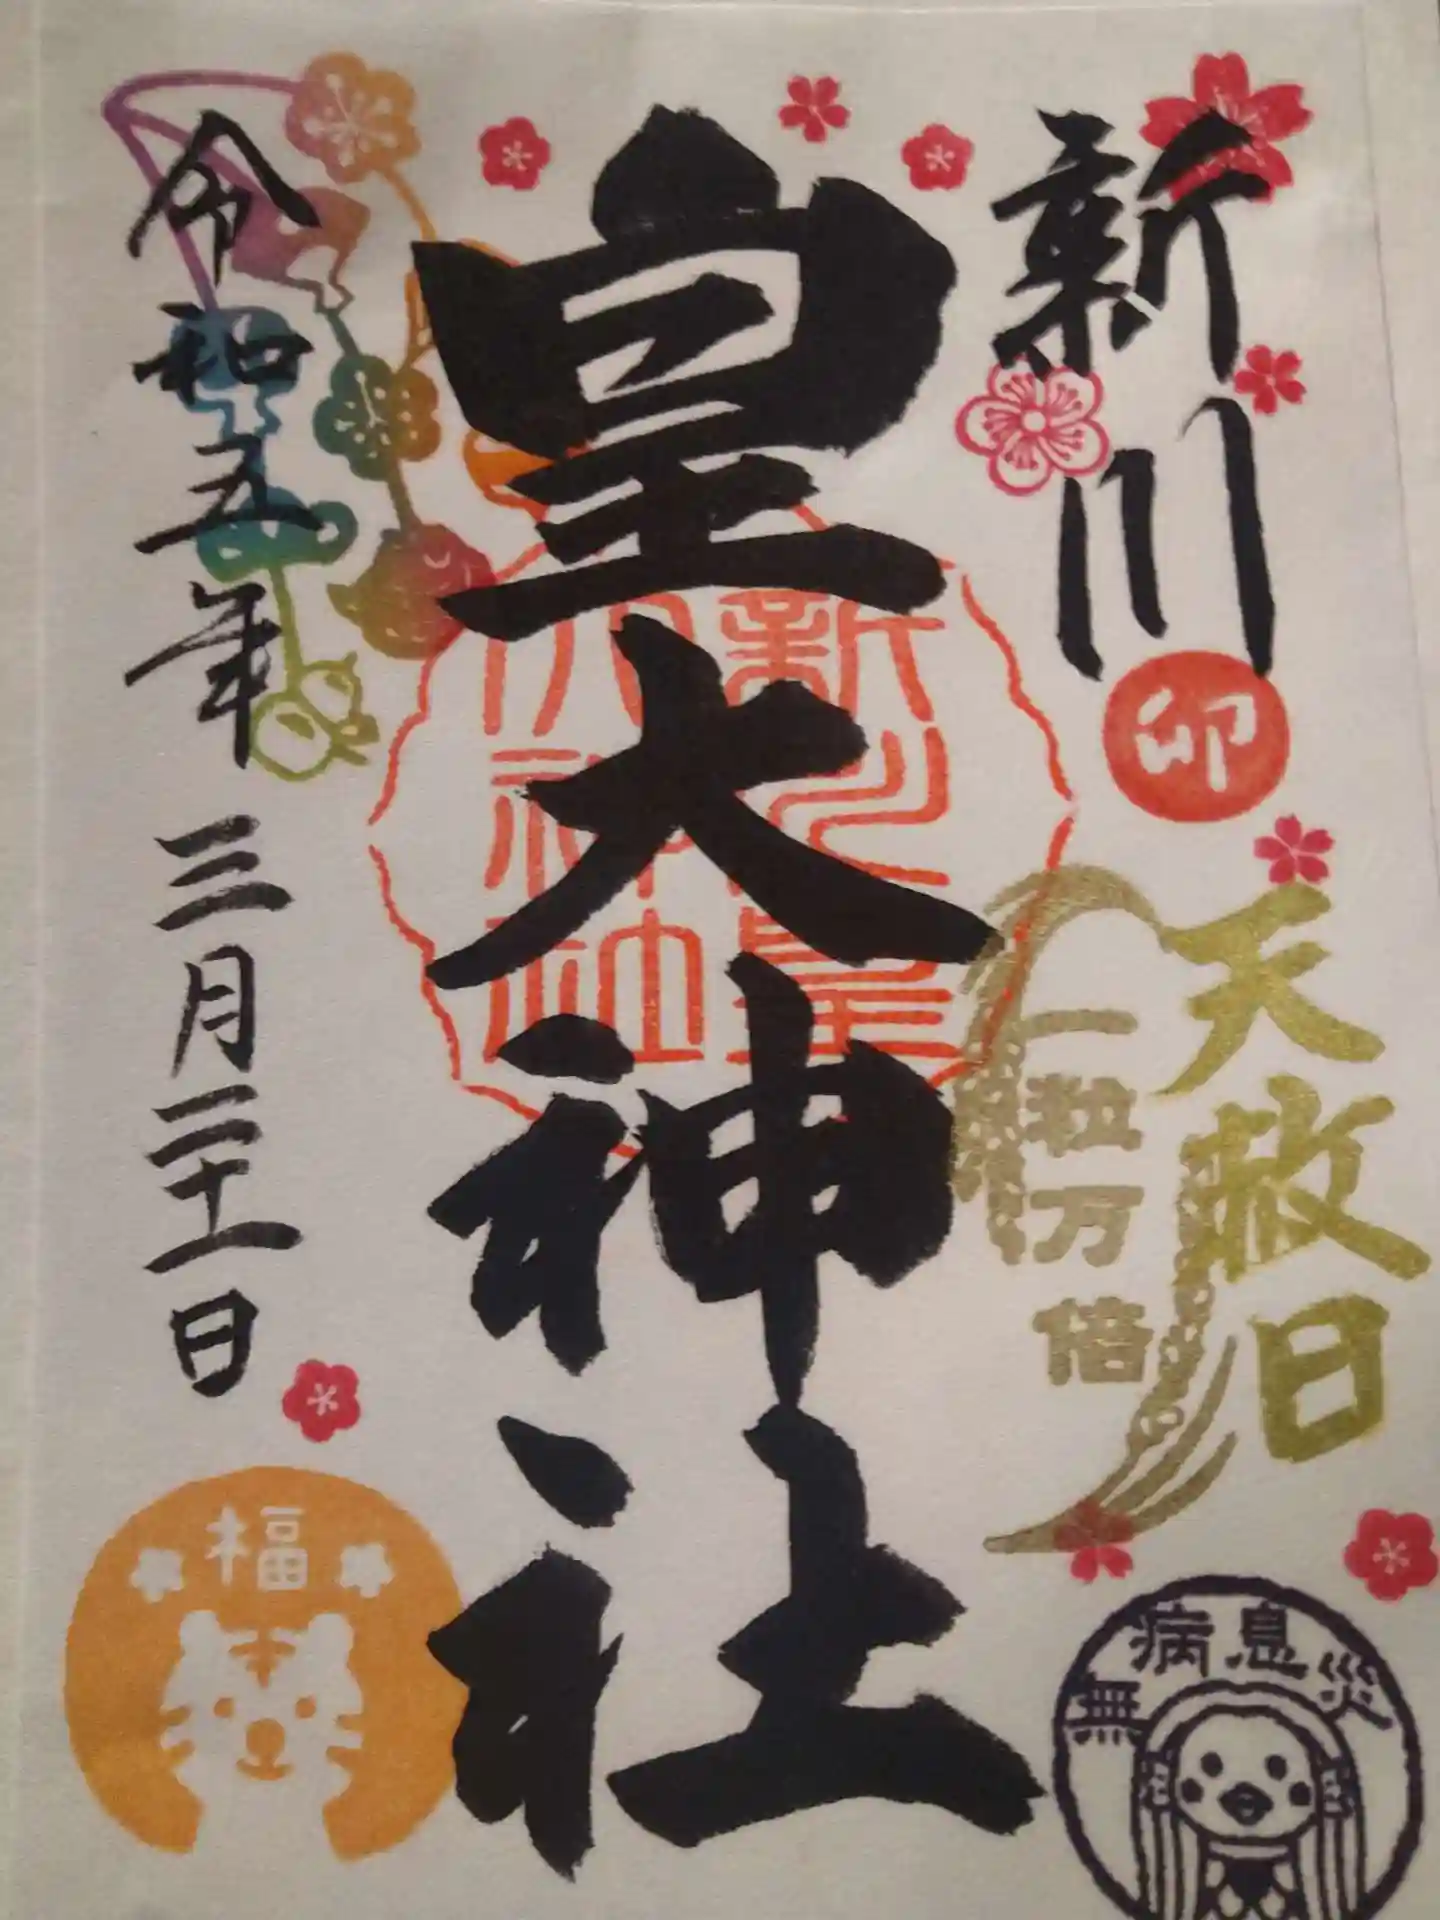 新川
卯
天赦日
一粒万倍
無病息災
皇大神社
新川皇
大神社
令和五年三月二十一日
福